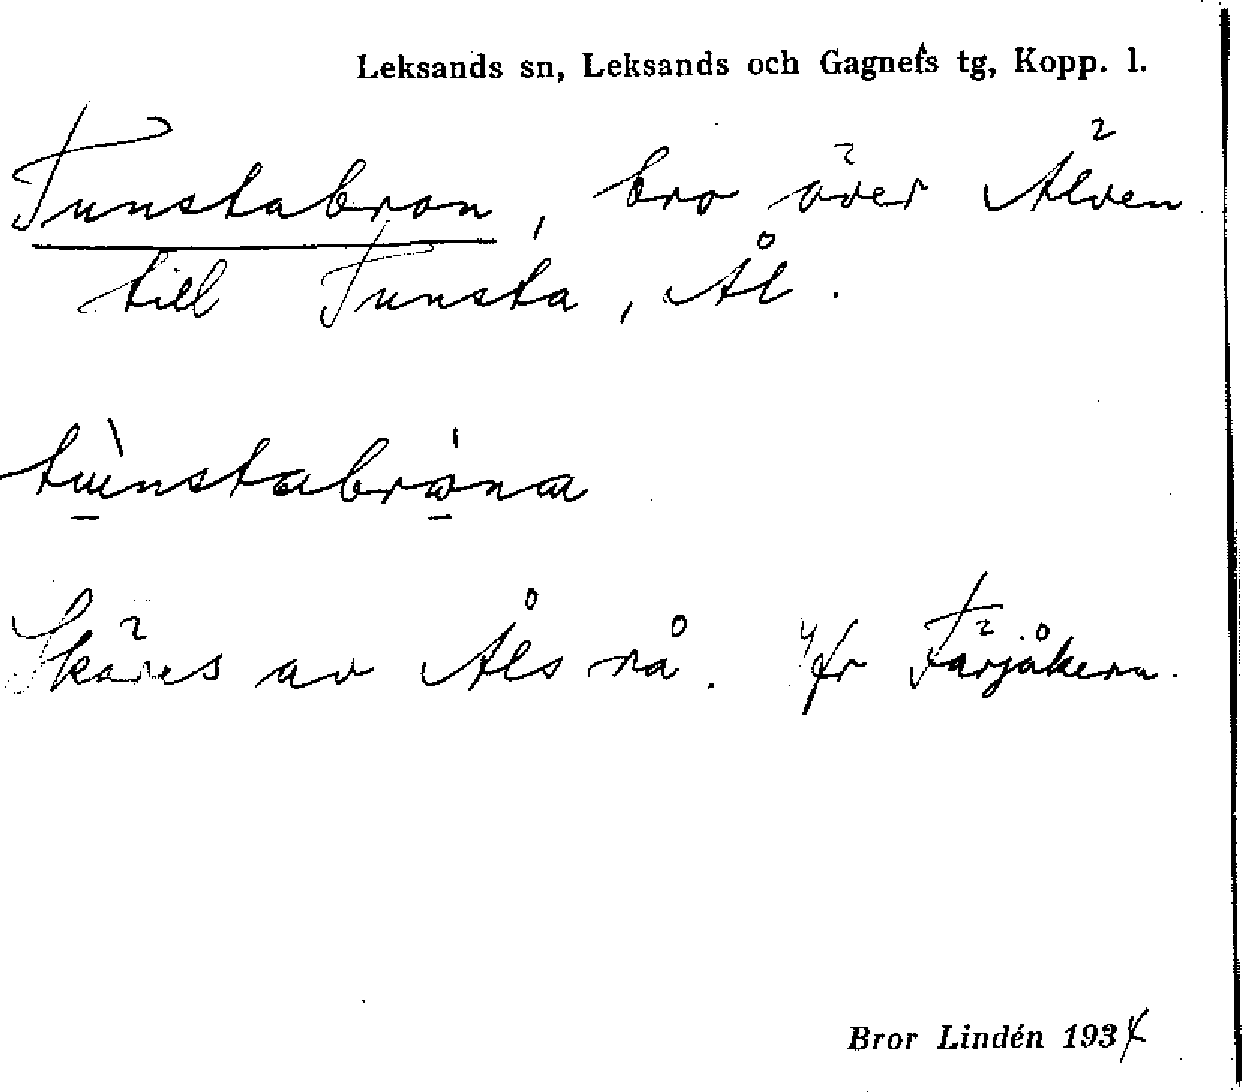 Leksands sn, Leksands och Gagnefs tg, Kopp. l.
Tunstabron, bro över Älven
till Tunsta, Ål.
Skäres av Åls rå. Jfr Färjåkern.
Bror Lindén 1934